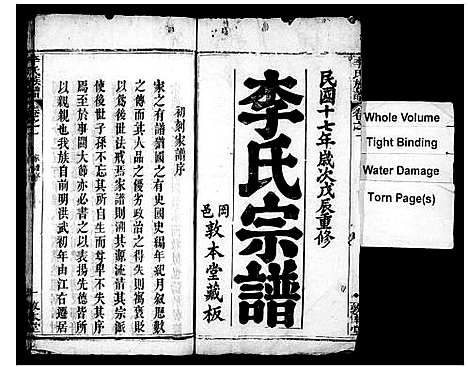 民國十七年歲次戊辰重修
李氏宗譜
岡邑
敦本堂藏板
初刻家譜序
家之有譜猶國之有史國史編年紀月叙歷數
之傳而其人品之優劣政治之得失則寓褒貶
以為後世法戒焉家譜則溯其源流清其宗派
使後世子孫不忘其所自生而尊卑不失其序
焉至於大節亦必書之以表揚先德皆所
以親親也我族自前明洪武初年由江右遷居
Whole Volume
Tight Binding
Water Damage
Torn Page(s)